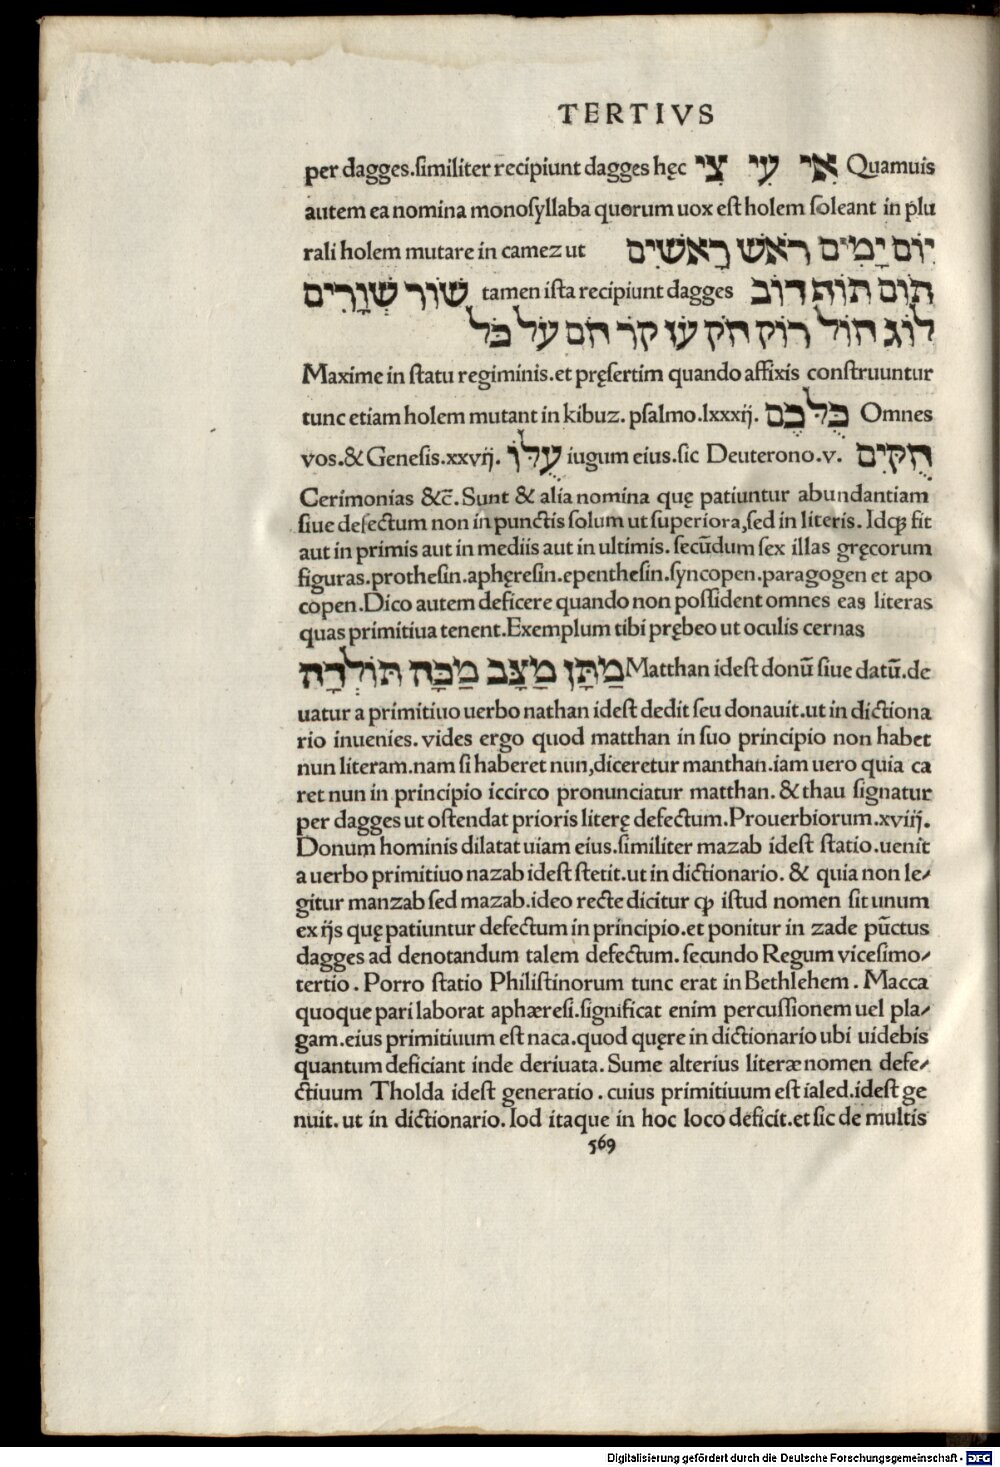 TERTIVS
per dagges.ſimiliter recipiunt dagges hęc אִי עִי צִי Quamuis
autem ea nomina monoſyllaba quorum uox eſt holem ſoleant in plu
rali holem mutare in camez ut יוֹם יָמִים רֹאשׁ רָאשִׁים
שׁוֹר שְׁוָרִים tamen iſta recipiunt dagges תּוֹם תּוֹת דּוֹב
לוֹג הוֹל רוֹק חֹק עֹז קֹר חֹם עֹל כֹּל
Maxime in ſtatu regiminis.et pręſertim quando affixis conſtruuntur
tunc etiam holem mutant in kibuz. pſalmo.lxxxij. כֻּלְּכֶם Omnes
vos.& Geneſis.xxvij. עֻלּוֹ iugum eius.ſic Deuterono.v. חֻקִּים
Cerimonias &c̃.Sunt & alia nomina quę patiuntur abundantiam
ſiue defectum non in punctis ſolum ut ſuperiora,ſed in literis. Idqꝫ fit
aut in primis aut in mediis aut in ultimis. ſecũdum ſex illas gręcorum
figuras.protheſin.aphęreſin.epentheſin.ſyncopen.paragogen et apo
copen.Dico autem deficere quando non poſſident omnes eas literas
quas primitiua tenent.Exemplum tibi prębeo ut oculis cernas
מַתָּן מַצָּב מַכָּה תּוֹלְדָה Matthan ideſt donũ ſiue datũ.de
uatur a primitiuo uerbo nathan ideſt dedit ſeu donauit.ut in dictiona
rio inuenies. vides ergo quod matthan in ſuo principio non habet
nun literam.nam ſi haberet nun,diceretur manthan.iam uero quia ca
ret nun in principio iccirco pronunciatur matthan. & thau ſignatur
per dagges ut oſtendat prioris literę defectum.Prouerbiorum.xviij.
Donum hominis dilatat uiam eius.ſimiliter mazab ideſt ſtatio.uenit
a uerbo primitiuo nazab ideſt ſtetit.ut in dictionario. & quia non le/
gitur manzab ſed mazab.ideo recte dicitur ꝙ iſtud nomen ſit unum
ex ijs quę patiuntur defectum in principio.et ponitur in zade pũctus
dagges ad denotandum talem defectum. ſecundo Regum viceſimo/
tertio. Porro ſtatio Philiſtinorum tunc erat in Bethlehem. Macca
quoque pari laborat aphæreſi.ſignificat enim percuſſionem uel pla/
gam.eius primitiuum eſt naca.quod quęre in dictionario ubi uidebis
quantum deficiant inde deriuata. Sume alterius literæ nomen defe/
ctiuum Tholda ideſt generatio. cuius primitiuum eſt ialed.ideſt ge
nuit. ut in dictionario. Iod itaque in hoc loco deficit.et ſic de multis
569
Digitalisierung gefördert durch die Deutsche Forschungsgemeinschaft - DFG